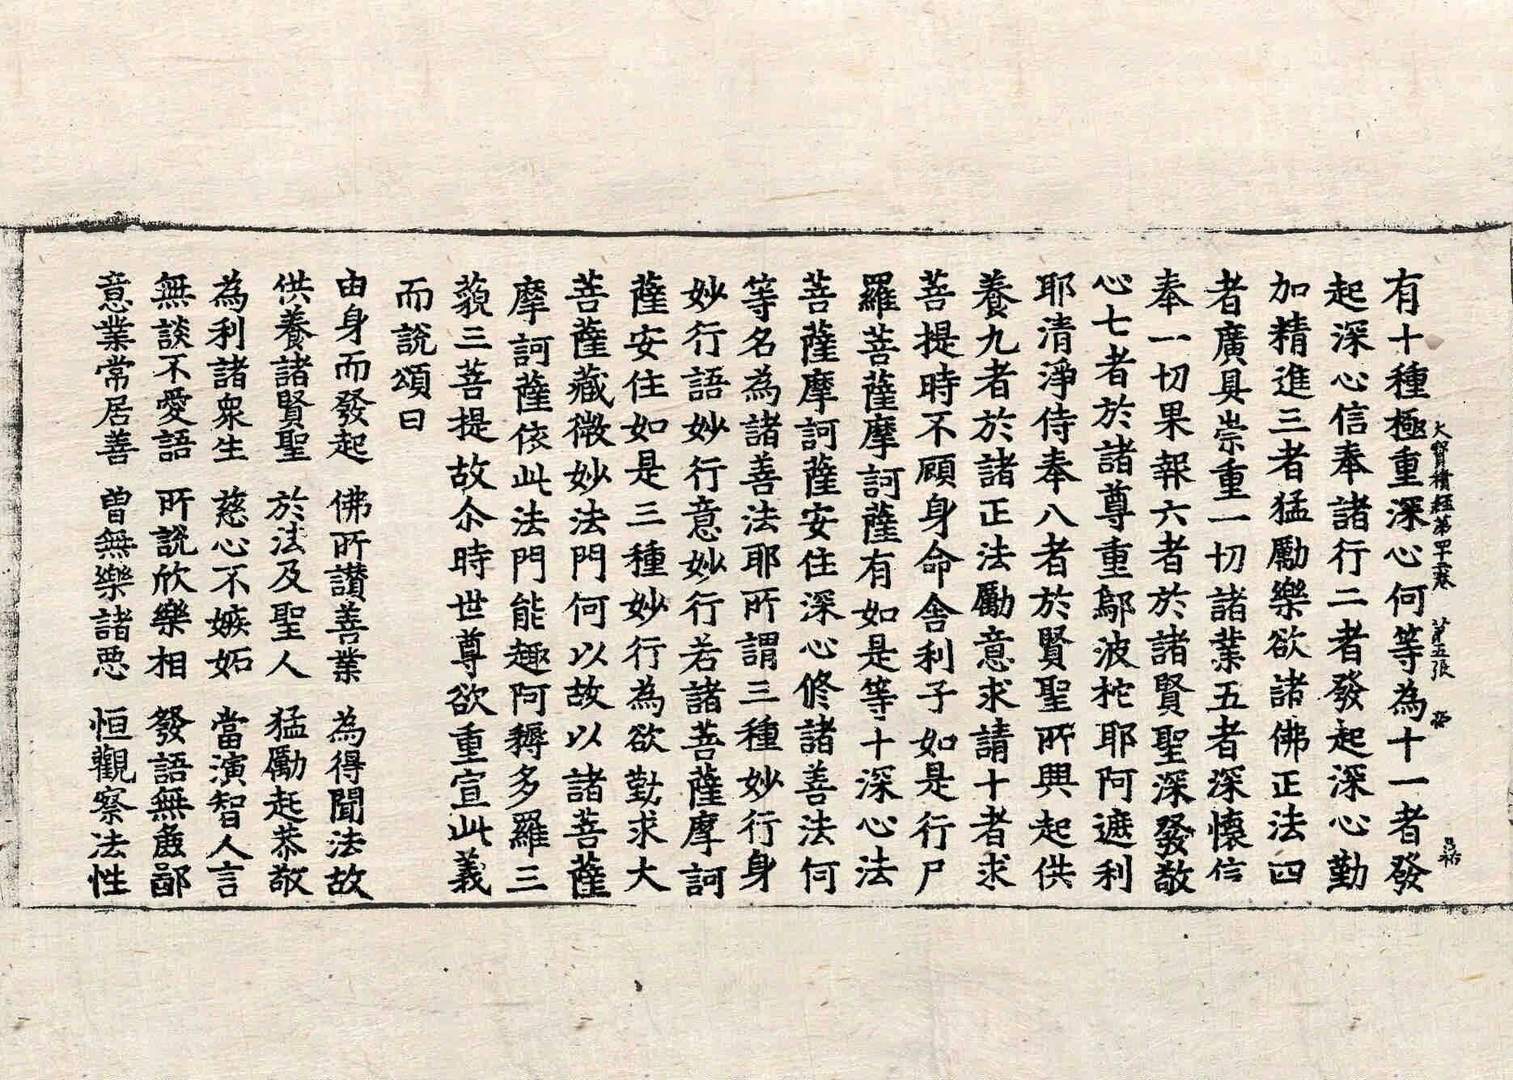 大寶積經第四十二卷 第五張 翁
有十種極重深心何等為十一者發
起深心信奉諸行二者發起深心勤
加精進三者猛勵樂欲諸佛正法四
者廣具崇重一切諸業五者深懷信
奉一切果報六者於諸賢聖深發敬
心七者於諸尊重鄔波柁耶阿遮利
耶清淨侍奉八者於賢聖所興起供
養九者於諸正法勵意求請十者求
菩提時不顧身命舍利子如是行尸
羅菩薩摩訶薩有如是等十深心法
菩薩摩訶薩安住深心修諸善法何
等名為諸善法耶所謂三種妙行身
妙行語妙行意妙行若諸菩薩摩訶
薩安住如是三種妙行為欲勤求大
菩薩藏微妙法門何以故以諸菩薩
摩訶薩依此法門能趣阿耨多羅三
藐三菩提故尒時世尊欲重宣此義
而說頌曰
由身而發起 佛所讚善業 為得聞法故
供養諸賢聖 於法及聖人 猛勵起恭敬
為利諸眾生 慈心不嫉妬 當演智人言
無談不愛語 所說欣樂相 發語無麁鄙
意業常居善 曾無樂諸惡 恒觀察法性